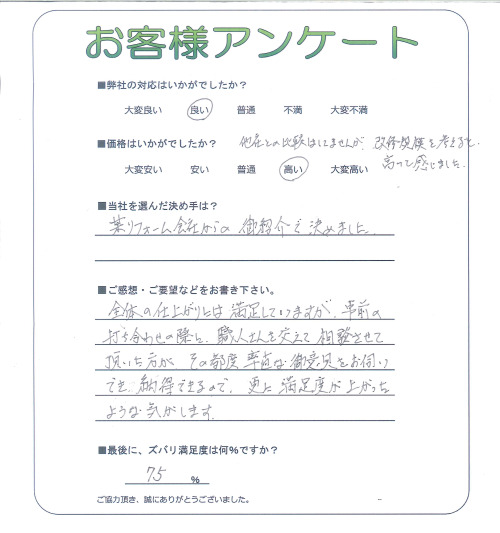 お客様アンケート
■弊社の対応はいかがでしたか？
大変良い 良い 普通 不満 大変不満
■価格はいかがでしたか？ 他社との比較はしてませんが、改修規模を考えると
高いと感じました。
大変安い 安い 普通 高い 大変高い
■当社を選んだ決め手は？
某リフォーム会社からの御紹介で決めました。
■ご感想・ご要望などをお書き下さい。
全体の仕上がりには満足していますが、事前の
打ち合わせの際に、職人さんを交えて相談させて
頂いた方が その都度 率直な御意見をお伺い
でき、納得できるので、更に満足度が上がった
ような気がします。
■最後に、ズバリ満足度は何％ですか？
75 ％
ご協力頂き、誠にありがとうございました。